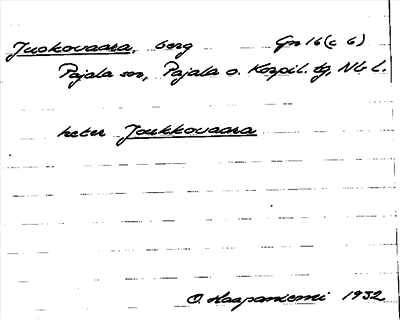 Juokovaara, berg Gn 16 (c 6)
Pajala sn, Pajala o. Korpil. tg, Nb. L.
heter Joukkovaara
O. Haapaniemi 1932